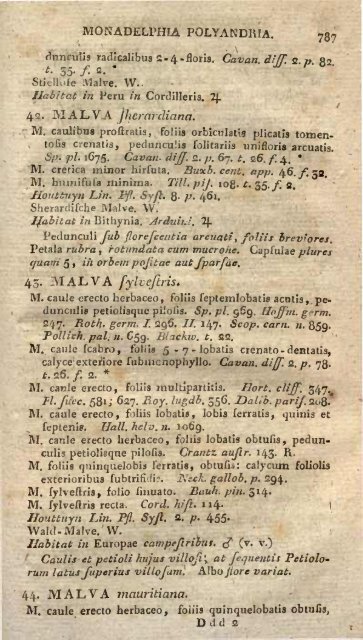 MONADELPHIA POLYANDRIA. 787
dunculis radicalibus 2-4-floris. Cavan. diſſ. 2. p. 82.
t. 35. f. 2. *
Stielloſe Malve. W.
Habitat in Peru in Cordilleris. ♃
42. MALVA ſherardiana.
M. caulibus proſtratis, foliis orbiculatis plicatis tomen-
toſis crenatis, pedunculis ſolitariis unifloris arcuatis.
Sp. pl. 1675. Cavan. diſſ. 2. p. 67. t. 26. f. 4. *
M. cretica minor hirſuta. Buxb. cent. app. 46. f. 32.
M. humifuſa minima. Till. piſ. 108. t. 35. f. 2.
Houttuyn Lin. Pfl. Syſt. 8. p. 461.
Sherardiſche Malve. W.
Habitat in Bithynia. Arduini. ♃
Pedunculi ſub floreſcentia arcuati, foliis breviores.
Petala rubra, rotundata cum mucrone. Capſulae plures
quam 5, in orbem poſitae aut ſparſae.
43. MALVA ſylveſtris.
M. caule erecto herbaceo, foliis ſeptemlobatis acutis, pe-
dunculis petioliſque piloſis. Sp. pl. 969. Hoffm. germ.
247. Roth. germ. I. 296. II. 147. Scop. carn. n. 859.
Pollich. pal. n. 659. Blackw. t. 22.
M. caule ſcabro, foliis 5-7-lobatis crenato-dentatis,
calyce exteriore ſubmonophyllo. Cavan. diſſ. 2. p. 78.
t. 26. f. 2. *
M. caule erecto, foliis multipartitis. Hort. cliff. 347.
Fl. ſuec. 581; 627. Roy. lugdb. 356. Dalib. pariſ. 208.
M. caule erecto, foliis lobatis, lobis ſerratis, quinis et
ſeptenis. Hall. helv. n. 1069.
M. caule erecto herbaceo, foliis lobatis obtuſis, pedun-
culis petioliſque piloſis. Crantz auſtr. 143. R.
M. foliis quinquelobis ſerratis, obtuſis: calycum foliolis
exterioribus ſubtrifidis. Neck. gallob. p. 294.
M. ſylveſtris, folio ſinuato. Bauh. pin. 314.
M. ſylveſtris recta. Cord. hiſt. 114.
Houttuyn Lin. Pfl. Syſt. 2. p. 455.
Wald-Malve. W.
Habitat in Europae campeſtribus. ♂ (v. v.)
Caulis et petioli hujus villoſi; at ſequentis Petiolo-
rum latus ſuperius villoſum. Albo flore variat.
44. MALVA mauritiana.
M. caule erecto herbaceo, foliis quinquelobatis obtuſis,
Ddd 2